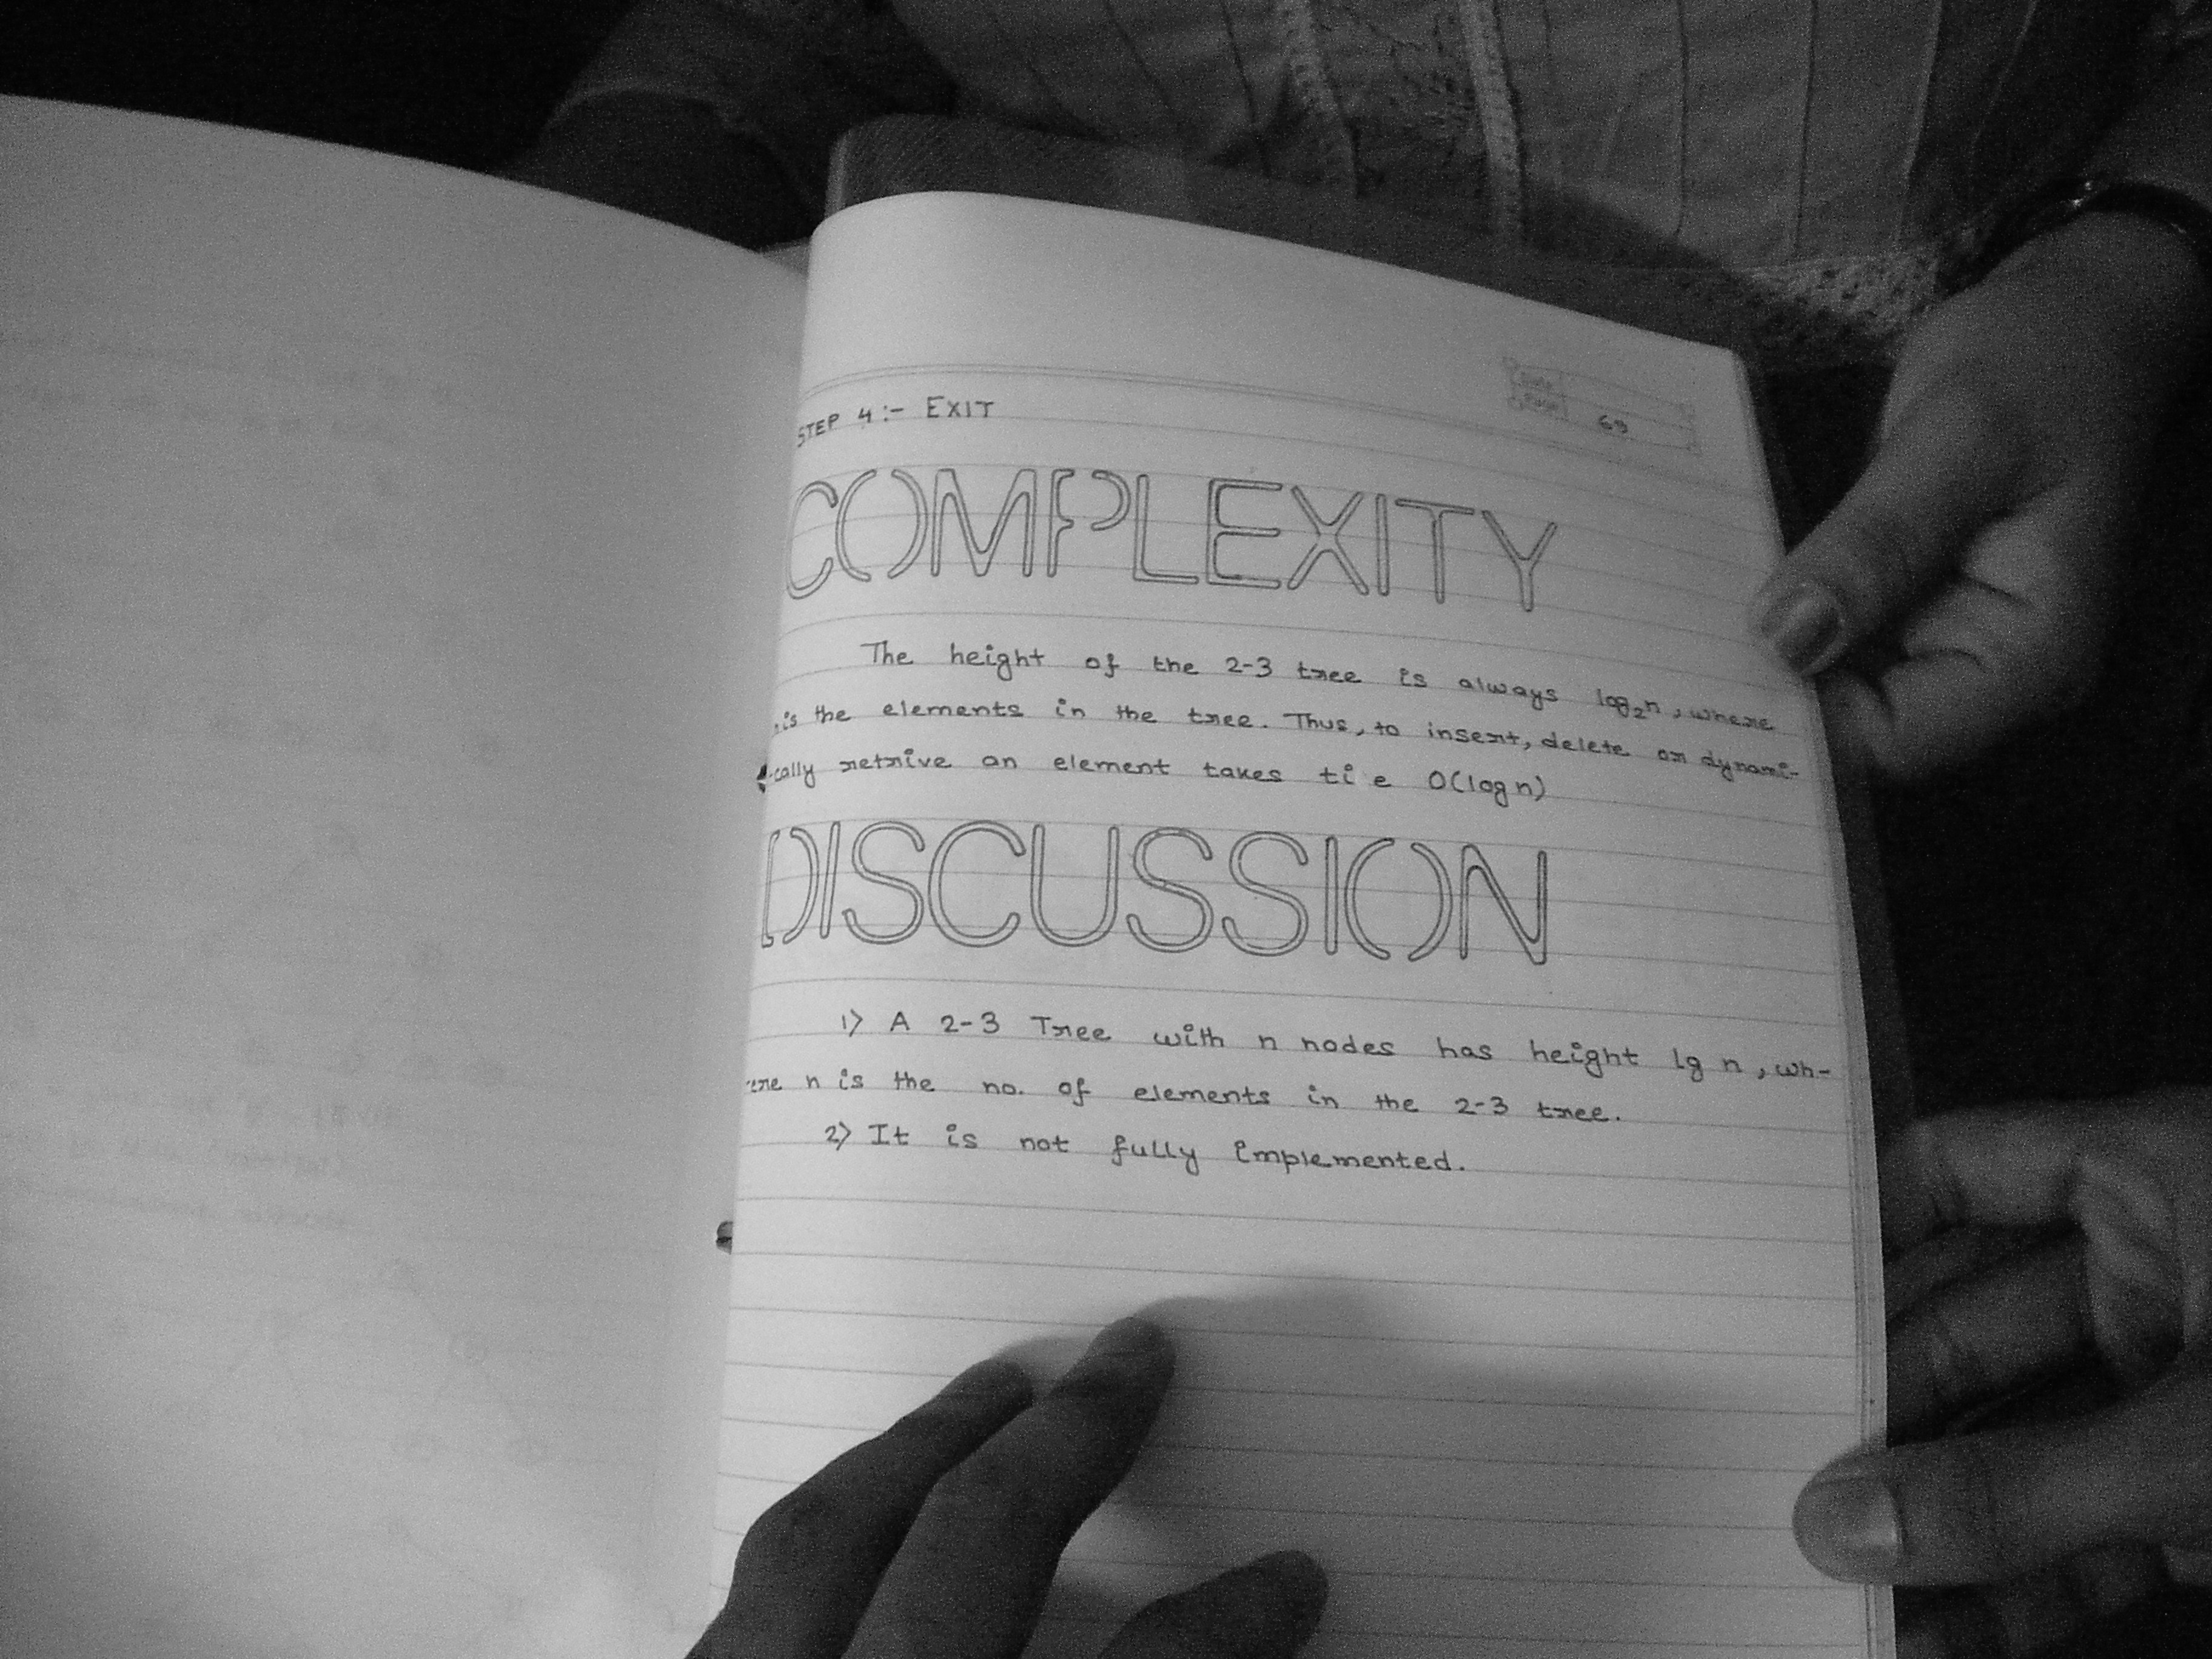 Date
Page 69
STEP 4:- EXIT
COMPLEXITY
The height of the 2-3 tree is always log₂n, where
n is the elements in the tree. Thus, to insert, delete or dynami-
cally retrive an element takes ti e O(log n)
DISCUSSION
1) A 2-3 Tree with n nodes has height lg n, wh-
ere n is the no. of elements in the 2-3 tree.
2) It is not fully implemented.